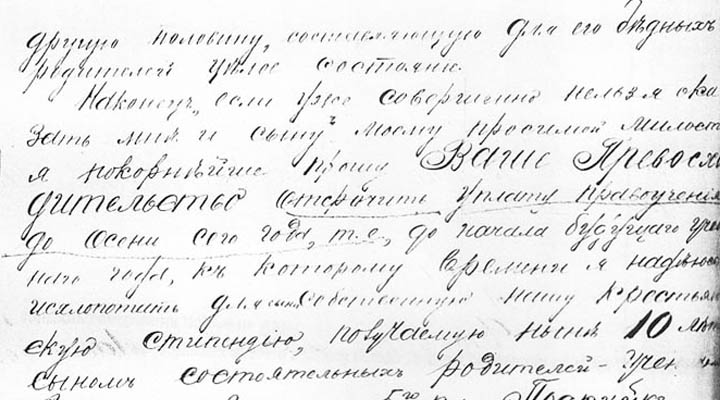 другую половину, составляющую для его бѣдныхъ
родителей цѣлое состояніе.
Наконецъ, если уже совершенно нельзя ока
зать мнѣ и сыну моему просимой милости
я покорнѣйше прошу Ваше Превосхо
дительство отсрочить уплату правоученія
до осени сего года, т.е. до начала будущаго учеб
наго года, къ которому времени я надѣюсь
исхлопотить для сына собственную нашу крестьян
скую стипендію, получаемую нынѣ 10 лѣтъ
сыномъ состоятельныхъ родителей - учен